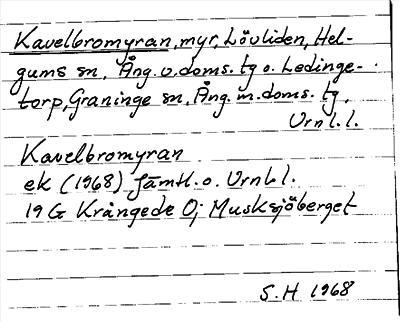 Kavelbromyran, myr, Lövliden, Hel-
gums sn, Ång. v. doms. tg o. Ledinge-
torp, Graninge sn, Ång. m. doms. tg,
Vrnl. l.
Kavelbromyran
ek (1968) Jämtl. o. Vrnl. l.
19 G Krångede Öj Musksjöberget
S. H 1968